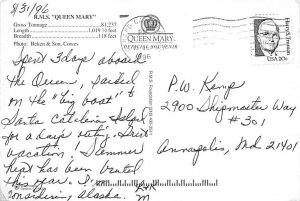 8/31/96
R.M.S. "QUEEN MARY"
Gross Tonnage 81,237
Length 1,019½ feet
Breadth 118 feet
Photo: Beken & Son, Cowes
QUEEN MARY
USA 20c
Spent 3 days aboard
the Queen, packed
on the "big boat" to
Santa Catalina Island
for a day outing. Great
vacation! Summer
kept has been rented
this year. I'm
considering, Alaska.
P.W. Kemp
2900 Shipmaster Way
#301
Annapolis, Md 21401